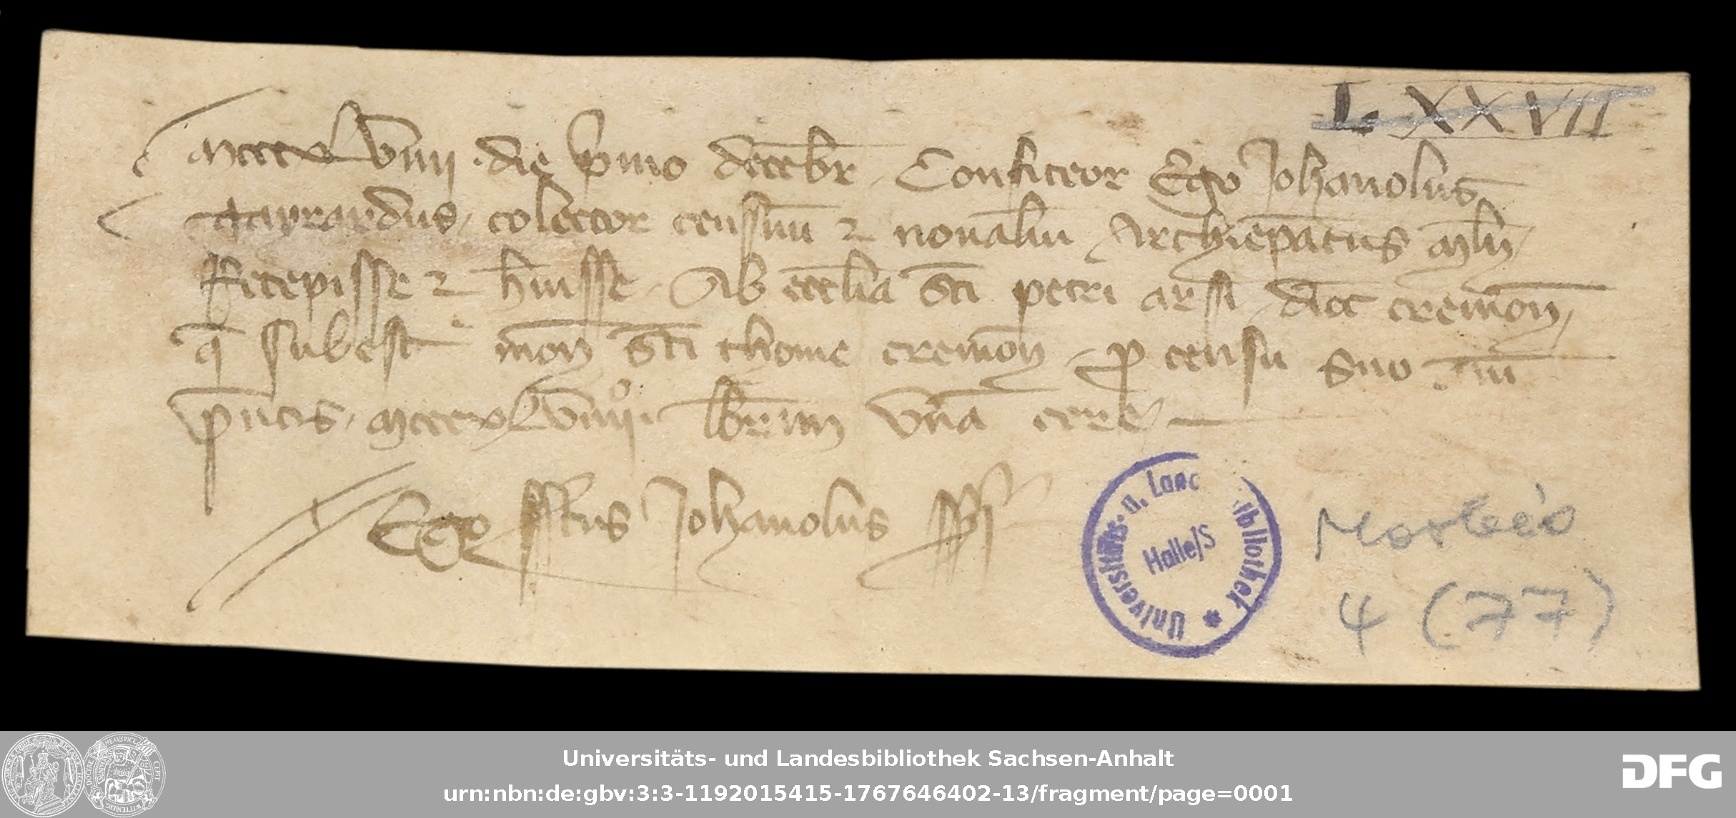 LXXVII
Mcccxlviiii die p̄mo decēbr̄ Confiteor Ego Johanolus
colector censuū ⁊ novaliū Archiep̄atus ml̄i
Recepisse ⁊ h̄uisse Ab ecclīa s̄ti petri dioc cremoñ
q̄ subest moñ s̄ti thome cremoñ p̱ censu suo
p̄ntis mcccxlviiii° lib̄ram ūnā cere
Ego sstus Johanolus sss
Universitäts- u. Landesbibliothek
Halle/S
4 (77)
Universitäts- und Landesbibliothek Sachsen-Anhalt
urn:nbn:de:gbv:3:3-1192015415-1767646402-13/fragment/page=0001
DFG